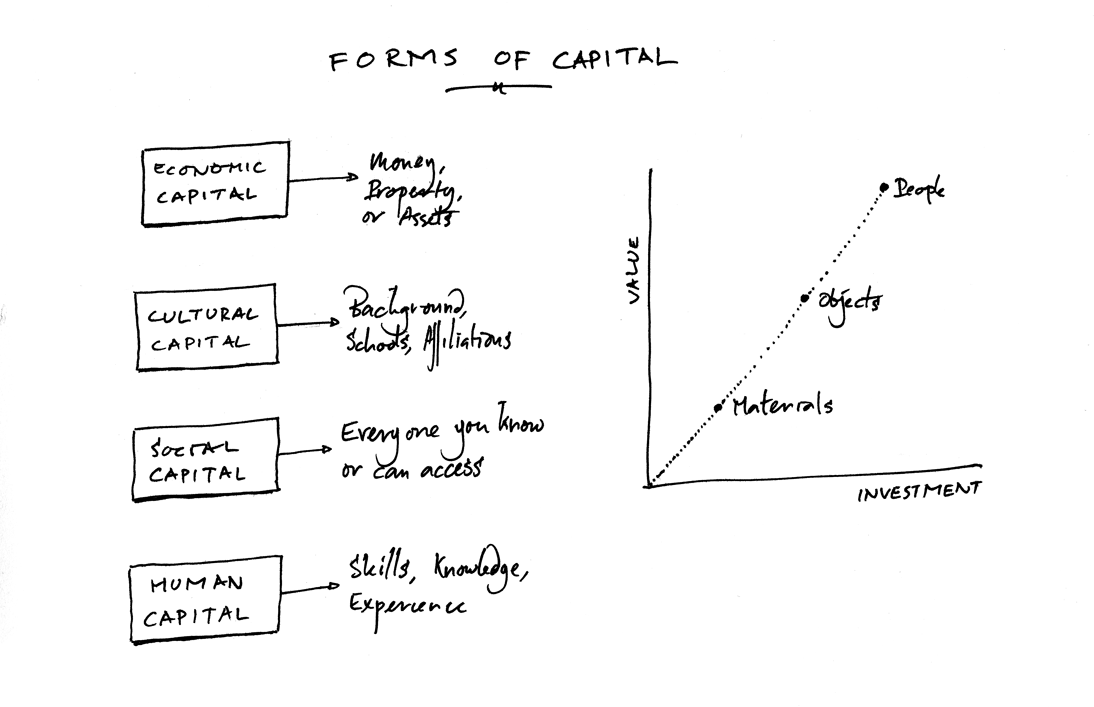 FORMS OF CAPITAL
ECONOMIC
CAPITAL
Money,
Property,
or Assets
CULTURAL
CAPITAL
Background,
Schools, Affiliations
SOCIAL
CAPITAL
Everyone you know
or can access
HUMAN
CAPITAL
Skills, Knowledge,
Experience
VALUE
People
Objects
Materials
INVESTMENT